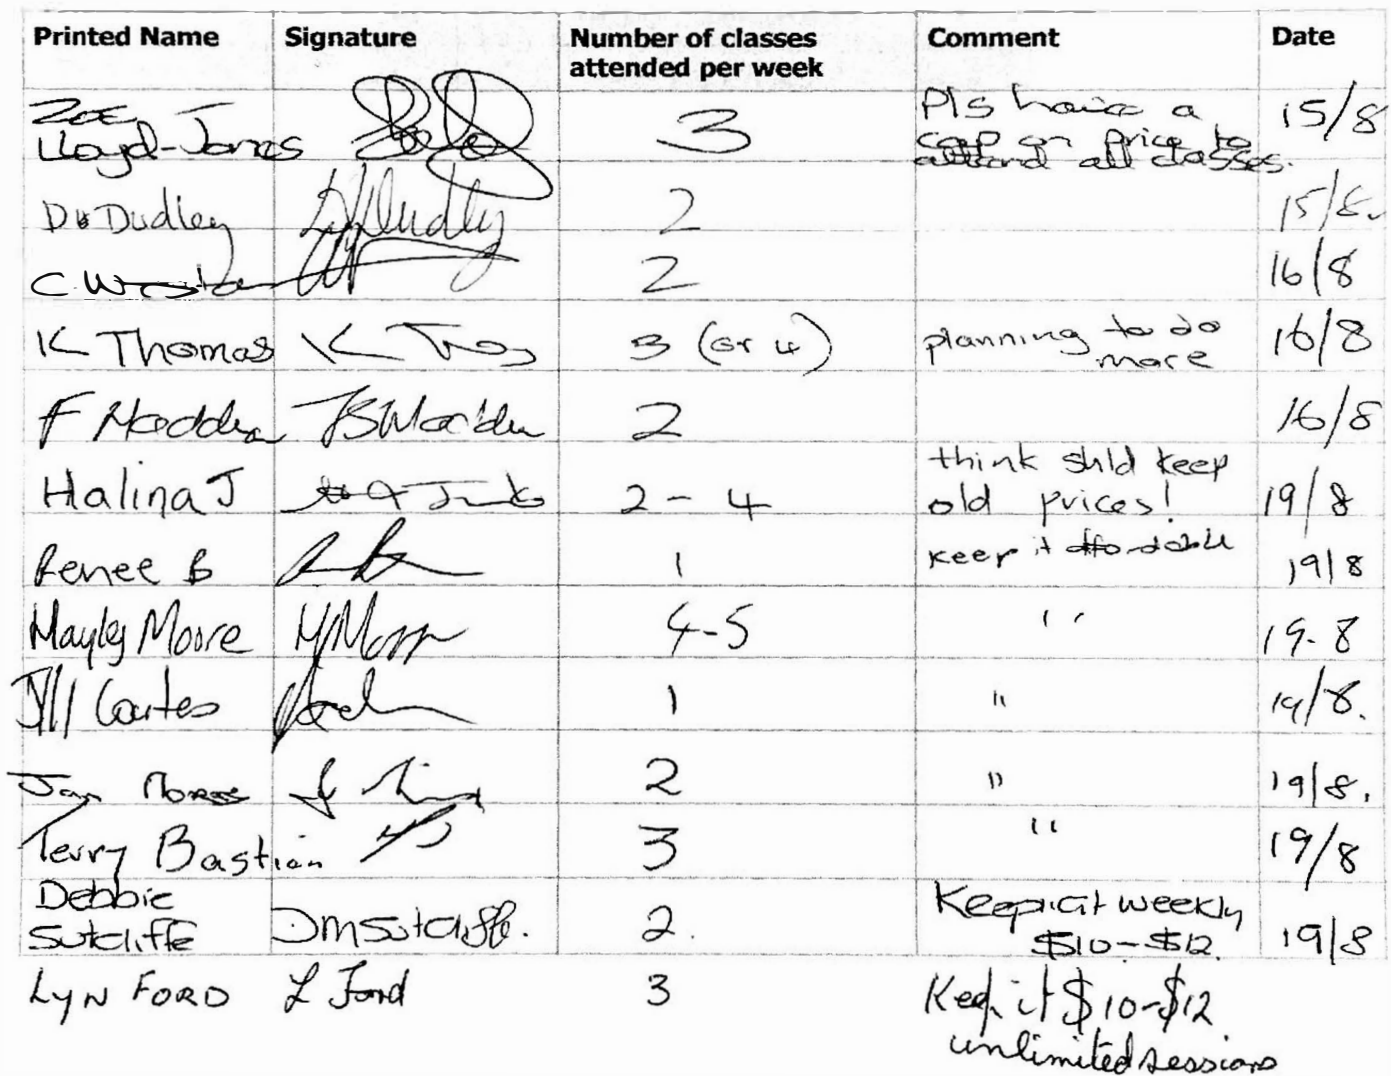 Printed Name Signature Number of classes attended per week Comment Date
Zoe Lloyd-Jones 3 Pls have a cap on price to attend all classes. 15/8
D Dudley 2 15/8.
C 2 16/8
K Thomas 3 (or 4) planning to do more 16/8
F Madden 2 16/8
Halina J 2 - 4 think shld keep old prices! 19/8
Renee B 1 keep it affordable 19/8
Hayley Moore 4-5 " 19-8
Jill Coates 1 " 19/8.
Jan 2 " 19/8.
Terry Bastian 3 " 19/8
Debbie Sutcliffe DMSutcliffe. 2. Keep it weekly $10-$12 19/8
LYN FORD L Ford 3 Keep it $10-$12 unlimited sessions